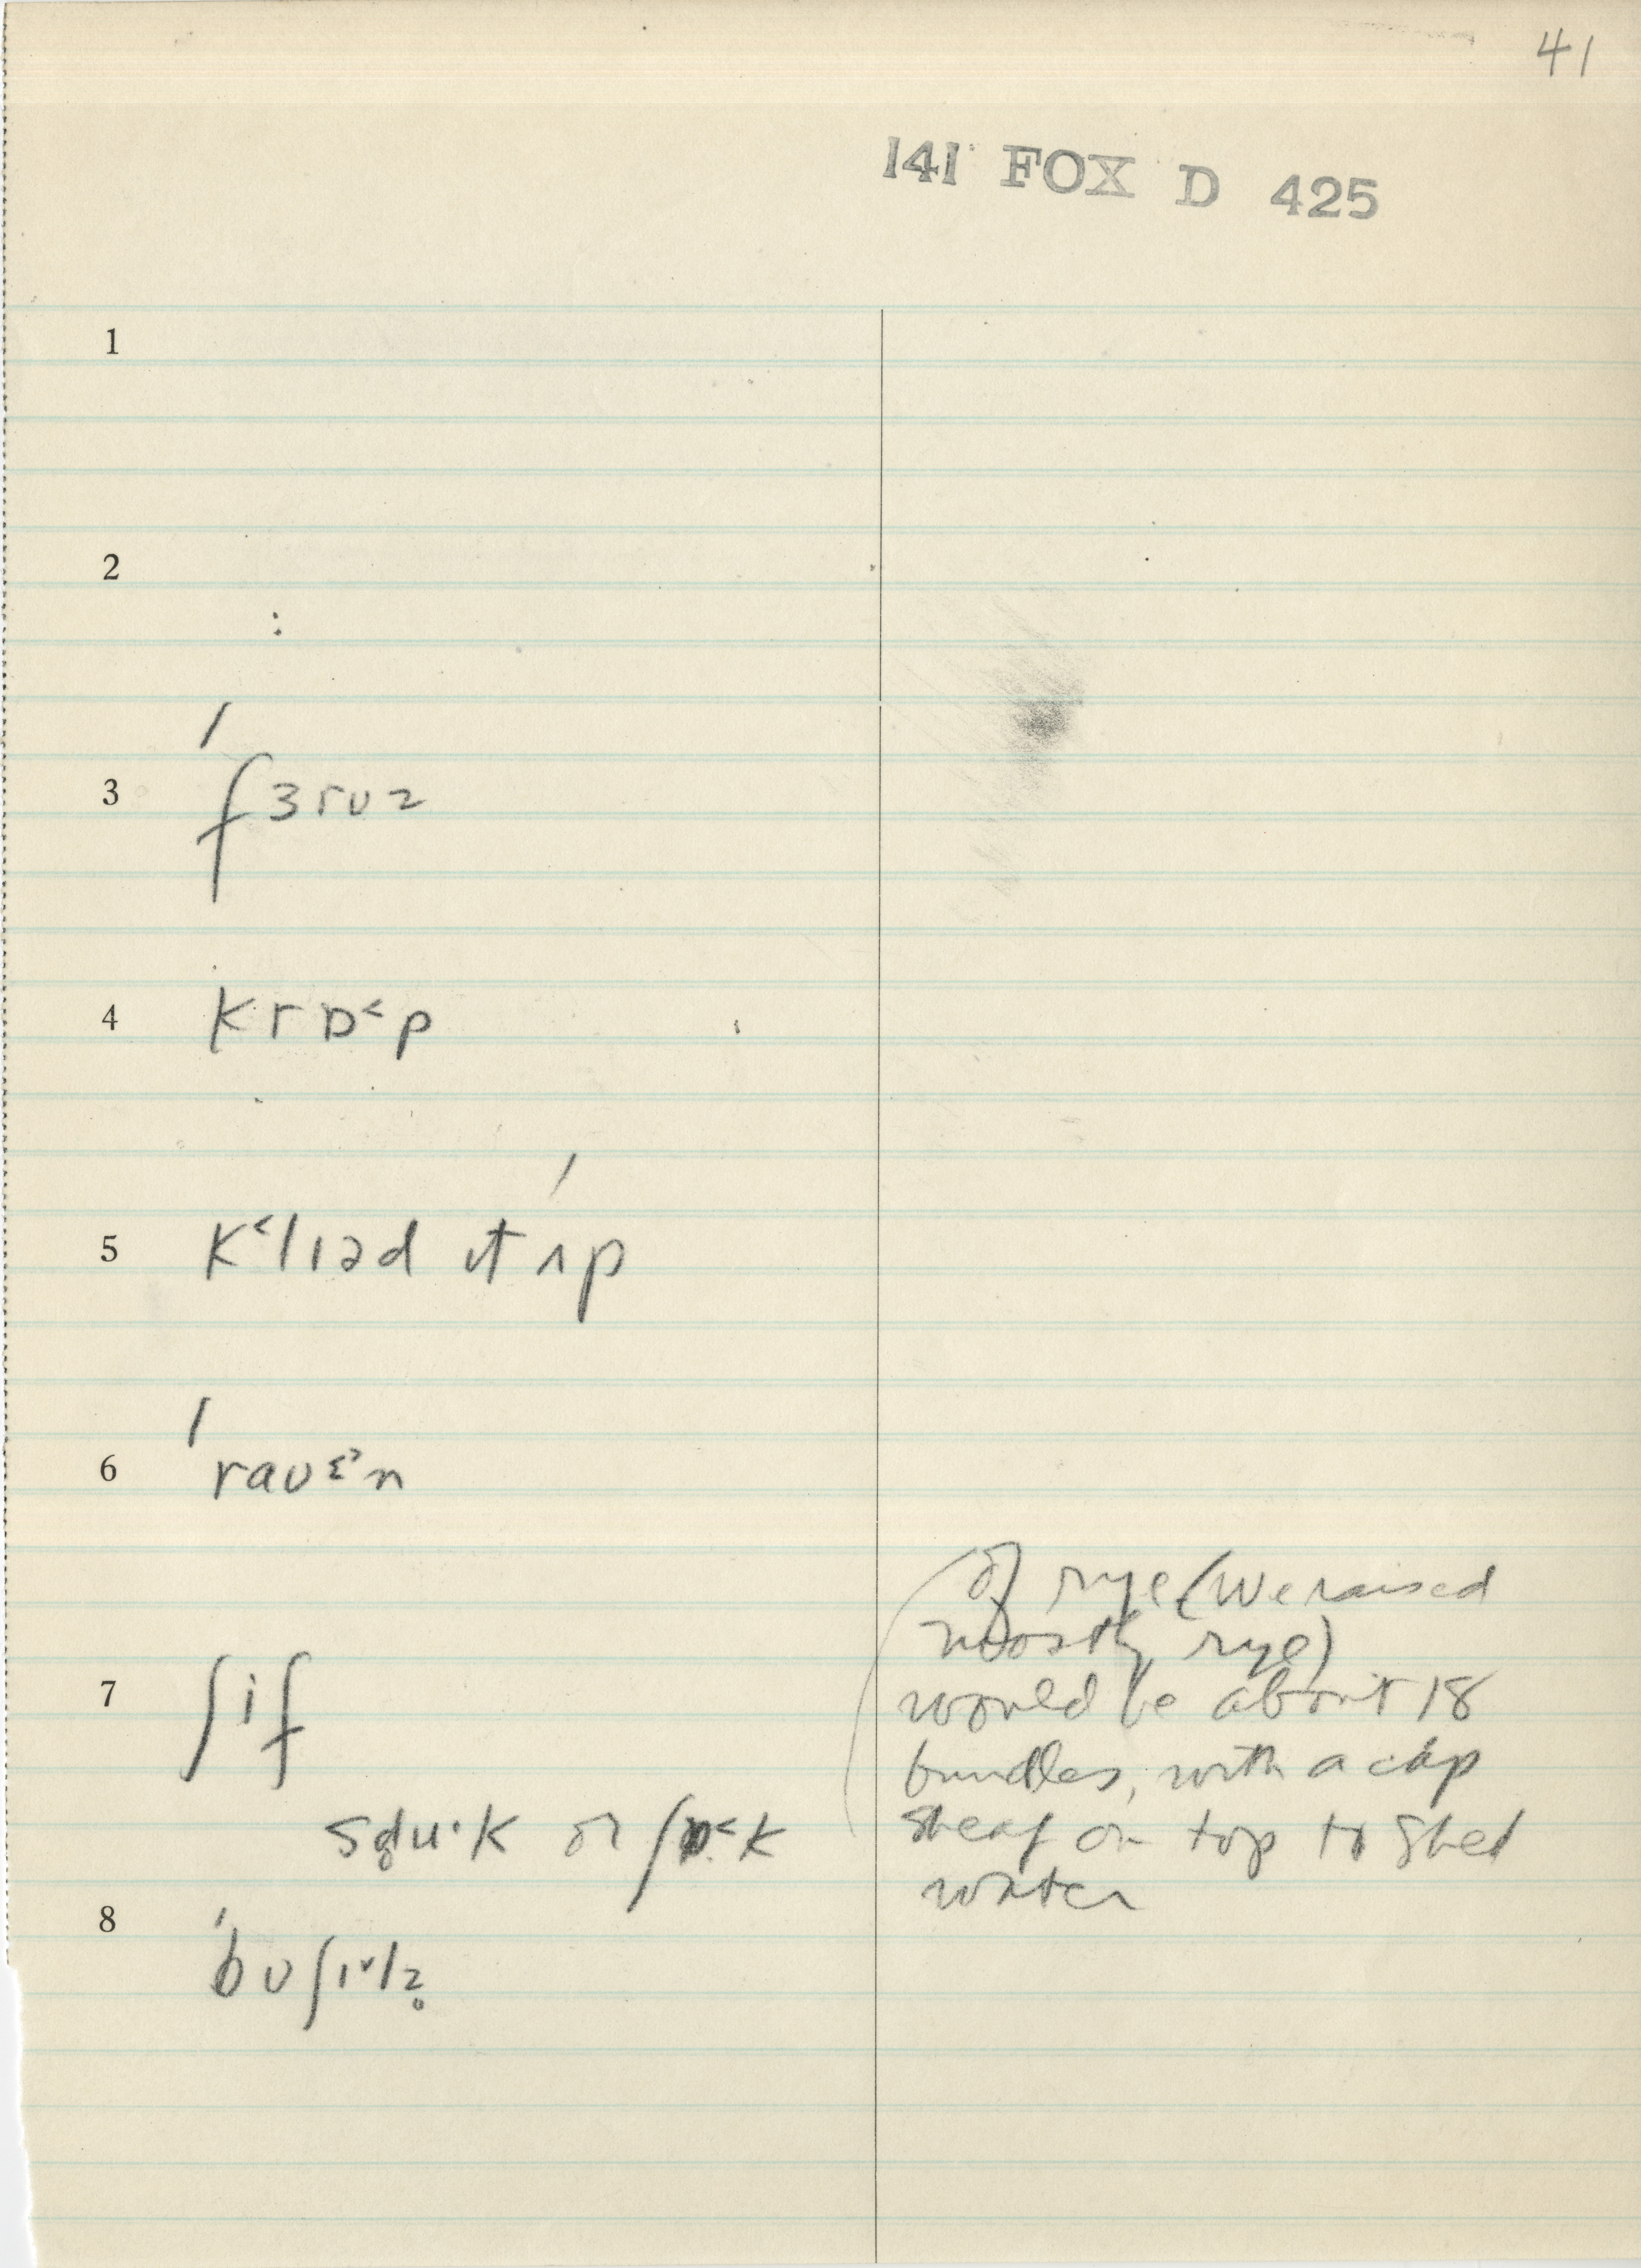 41
141 FOX D 425
1
2
3 ˈfɜrʊz
4 krɒ˂p
5 k˂lɪəd ɪt ˈʌp
6 ˈravɛ˃n
7 ʃif
(of rye (We raised
mostly rye)
would be about 18
bundles, with a cap
sheaf on top to shed
water
or ʃɒ˂k
8 ˈbʊʃɪ˅lz̥